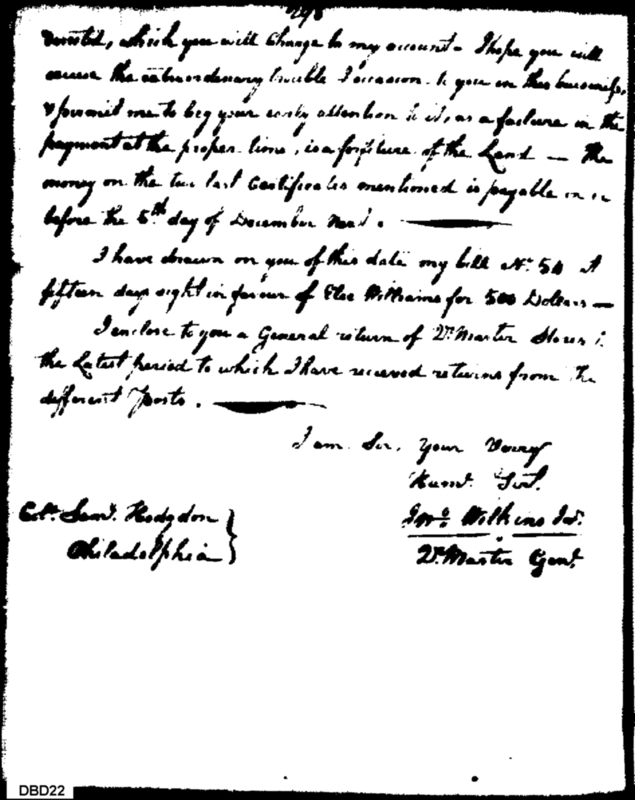 298
directed, which you will Charge to my account - I hope you will
excuse the extraordinary trouble I occasion to you in this business,
& permit me to beg your early attention to it, as a failure in the
payment at the proper time, is a forfeiture of the Land — The
money on the two last Certificates mentioned is payable on or
before the 5th day of December Next. —
I have drawn on you of this date my bill No. 54 At
fifteen days sight in favour of Elee Williams for 500 Dollars —
I enclose to you a General return of Qr. Master Stores to
the Latest period to which I have received returns from the
different Posts. —
I am Sir, Your Very
Humb. Servt.
Colo. Saml. Hodgdon }
Philadelphia
Jno. Wilkins Jr.
Qr. Master Genl.
DBD22